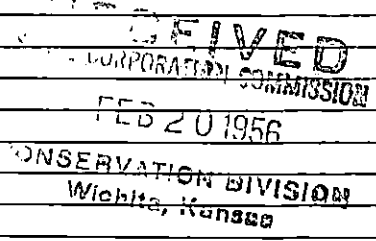 RECEIVED
CORPORATION COMMISSION
FEB 20 1956
CONSERVATION DIVISION
Wichita, Kansas